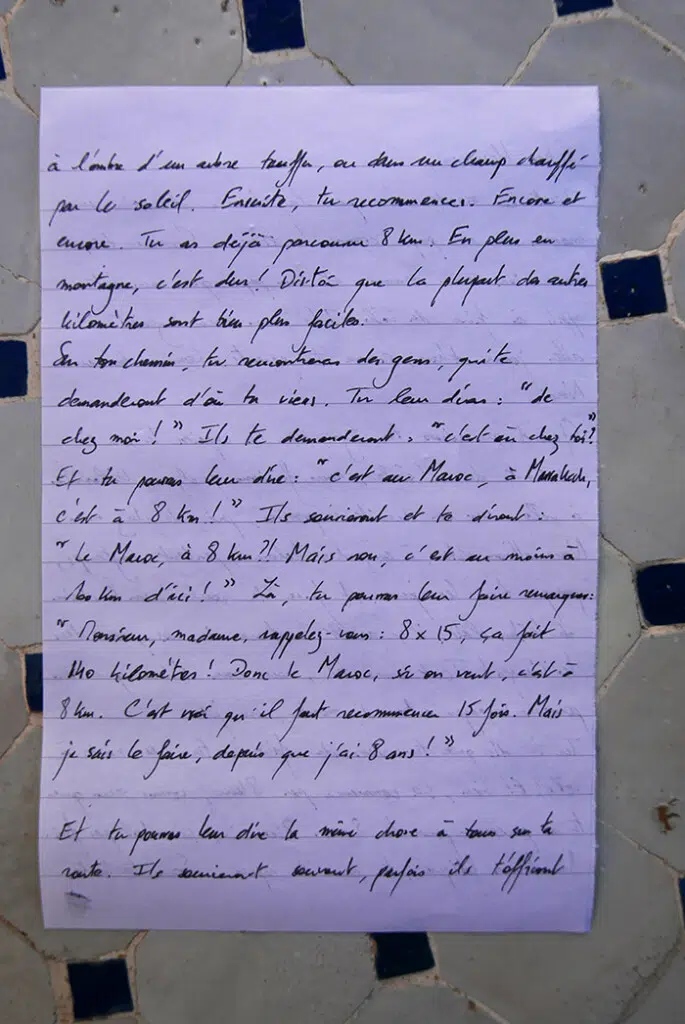 à l'ombre d'un arbre touffu, ou dans un champ chauffé
par le soleil. Ensuite, tu recommences. Encore et
encore. Tu as déjà parcouru 8 km. En plus en
montagne, c'est dur! Dis-toi que la plupart des autres
kilomètres sont bien plus faciles.
Sur ton chemin, tu rencontreras des gens, qui te
demanderont d'où tu viens. Tu leur diras : "de
chez moi ! " Ils te demanderont : "c'est où chez toi?"
Et tu pourras leur dire : "c'est au Maroc, à Marrakech,
c'est à 8 km ! " Ils souriront et te diront :
"Le Maroc, à 8 km?! Mais non, c'est au moins à
100 km d'ici ! " Là, tu pourras leur faire remarquer:
"Monsieur, madame, rappelez-vous : 8 x 15, ça fait
140 kilomètres ! Donc le Maroc, si on veut, c'est à
8 km. C'est vrai qu'il faut recommencer 15 fois. Mais
je sais le faire, depuis que j'ai 8 ans ! "
Et tu pourras leur dire la même chose à tous sur ta
route. Ils souriront souvent, parfois ils t'offriront